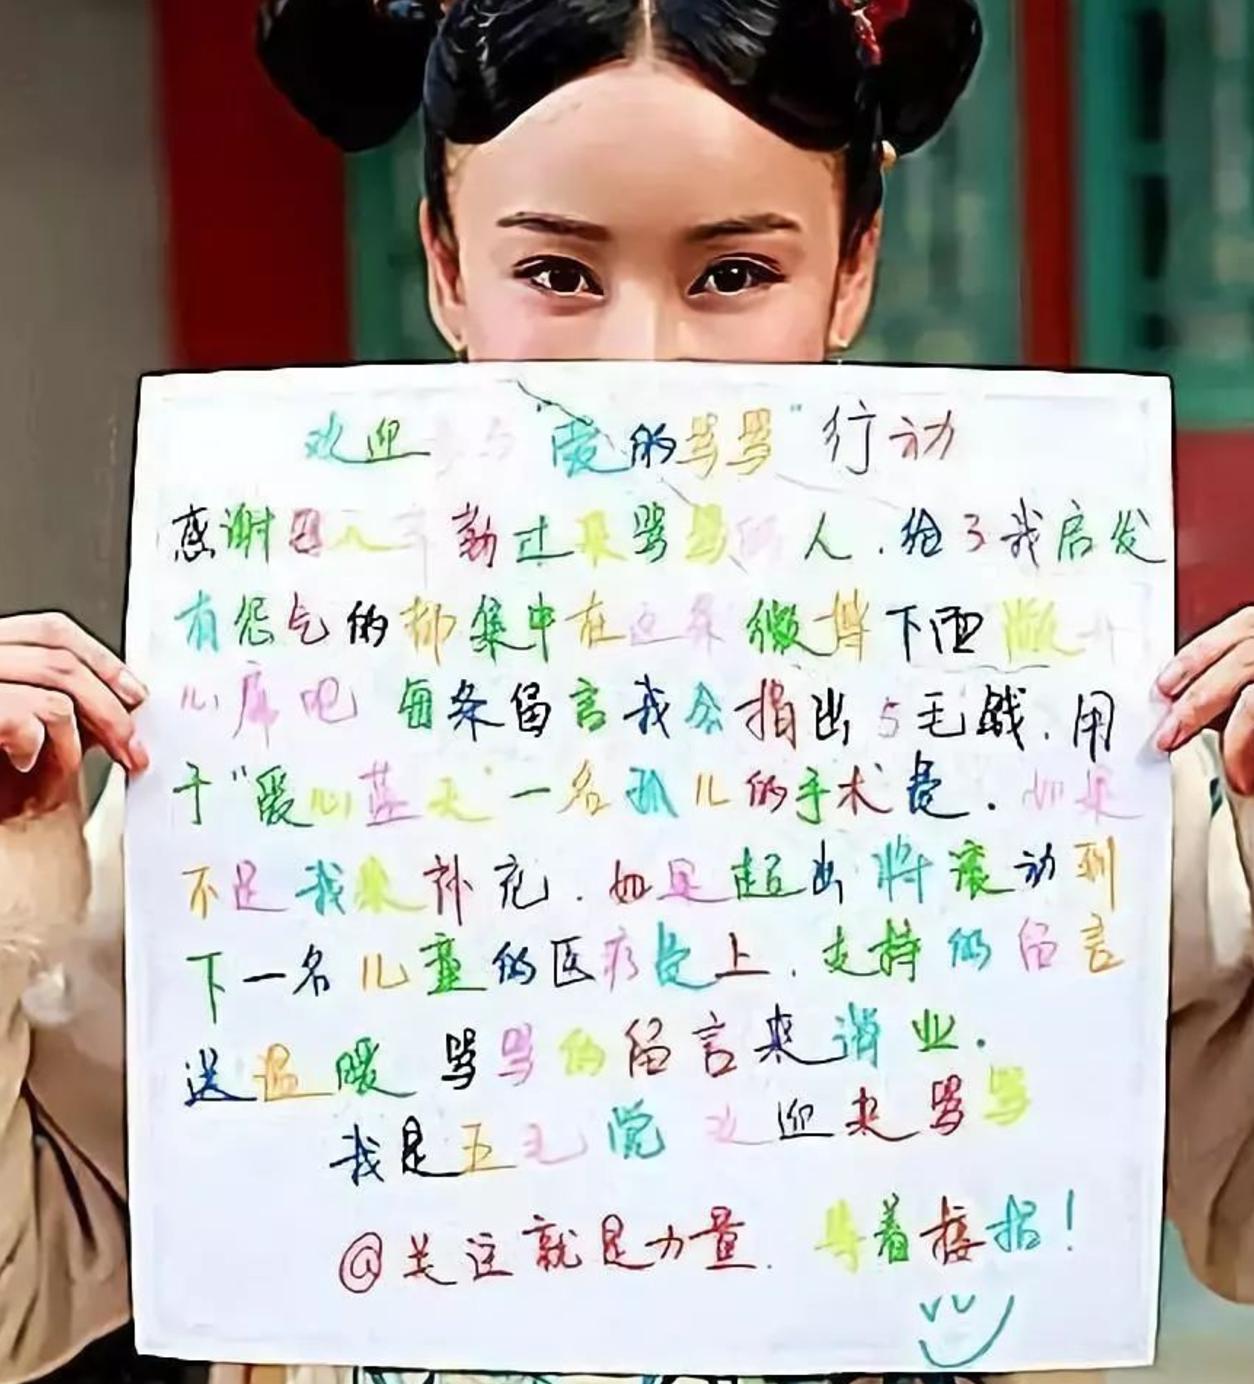 欢迎参与“爱的骂骂”行动
感谢因入辛勤过来骂骂的人.给了我启发
有怨气的都集中在这条微博下面敞开
心扉吧 每条留言我会捐出5毛钱.用
于“爱心蓝天”一名孤儿的手术费.如果
不足我来补充.如果超出将滚动到
下一名儿童的医疗费上.支持的留言
送温暖 骂骂的留言来消业.
我是五毛党 欢迎来骂骂
@关注就是力量. 等着接招!